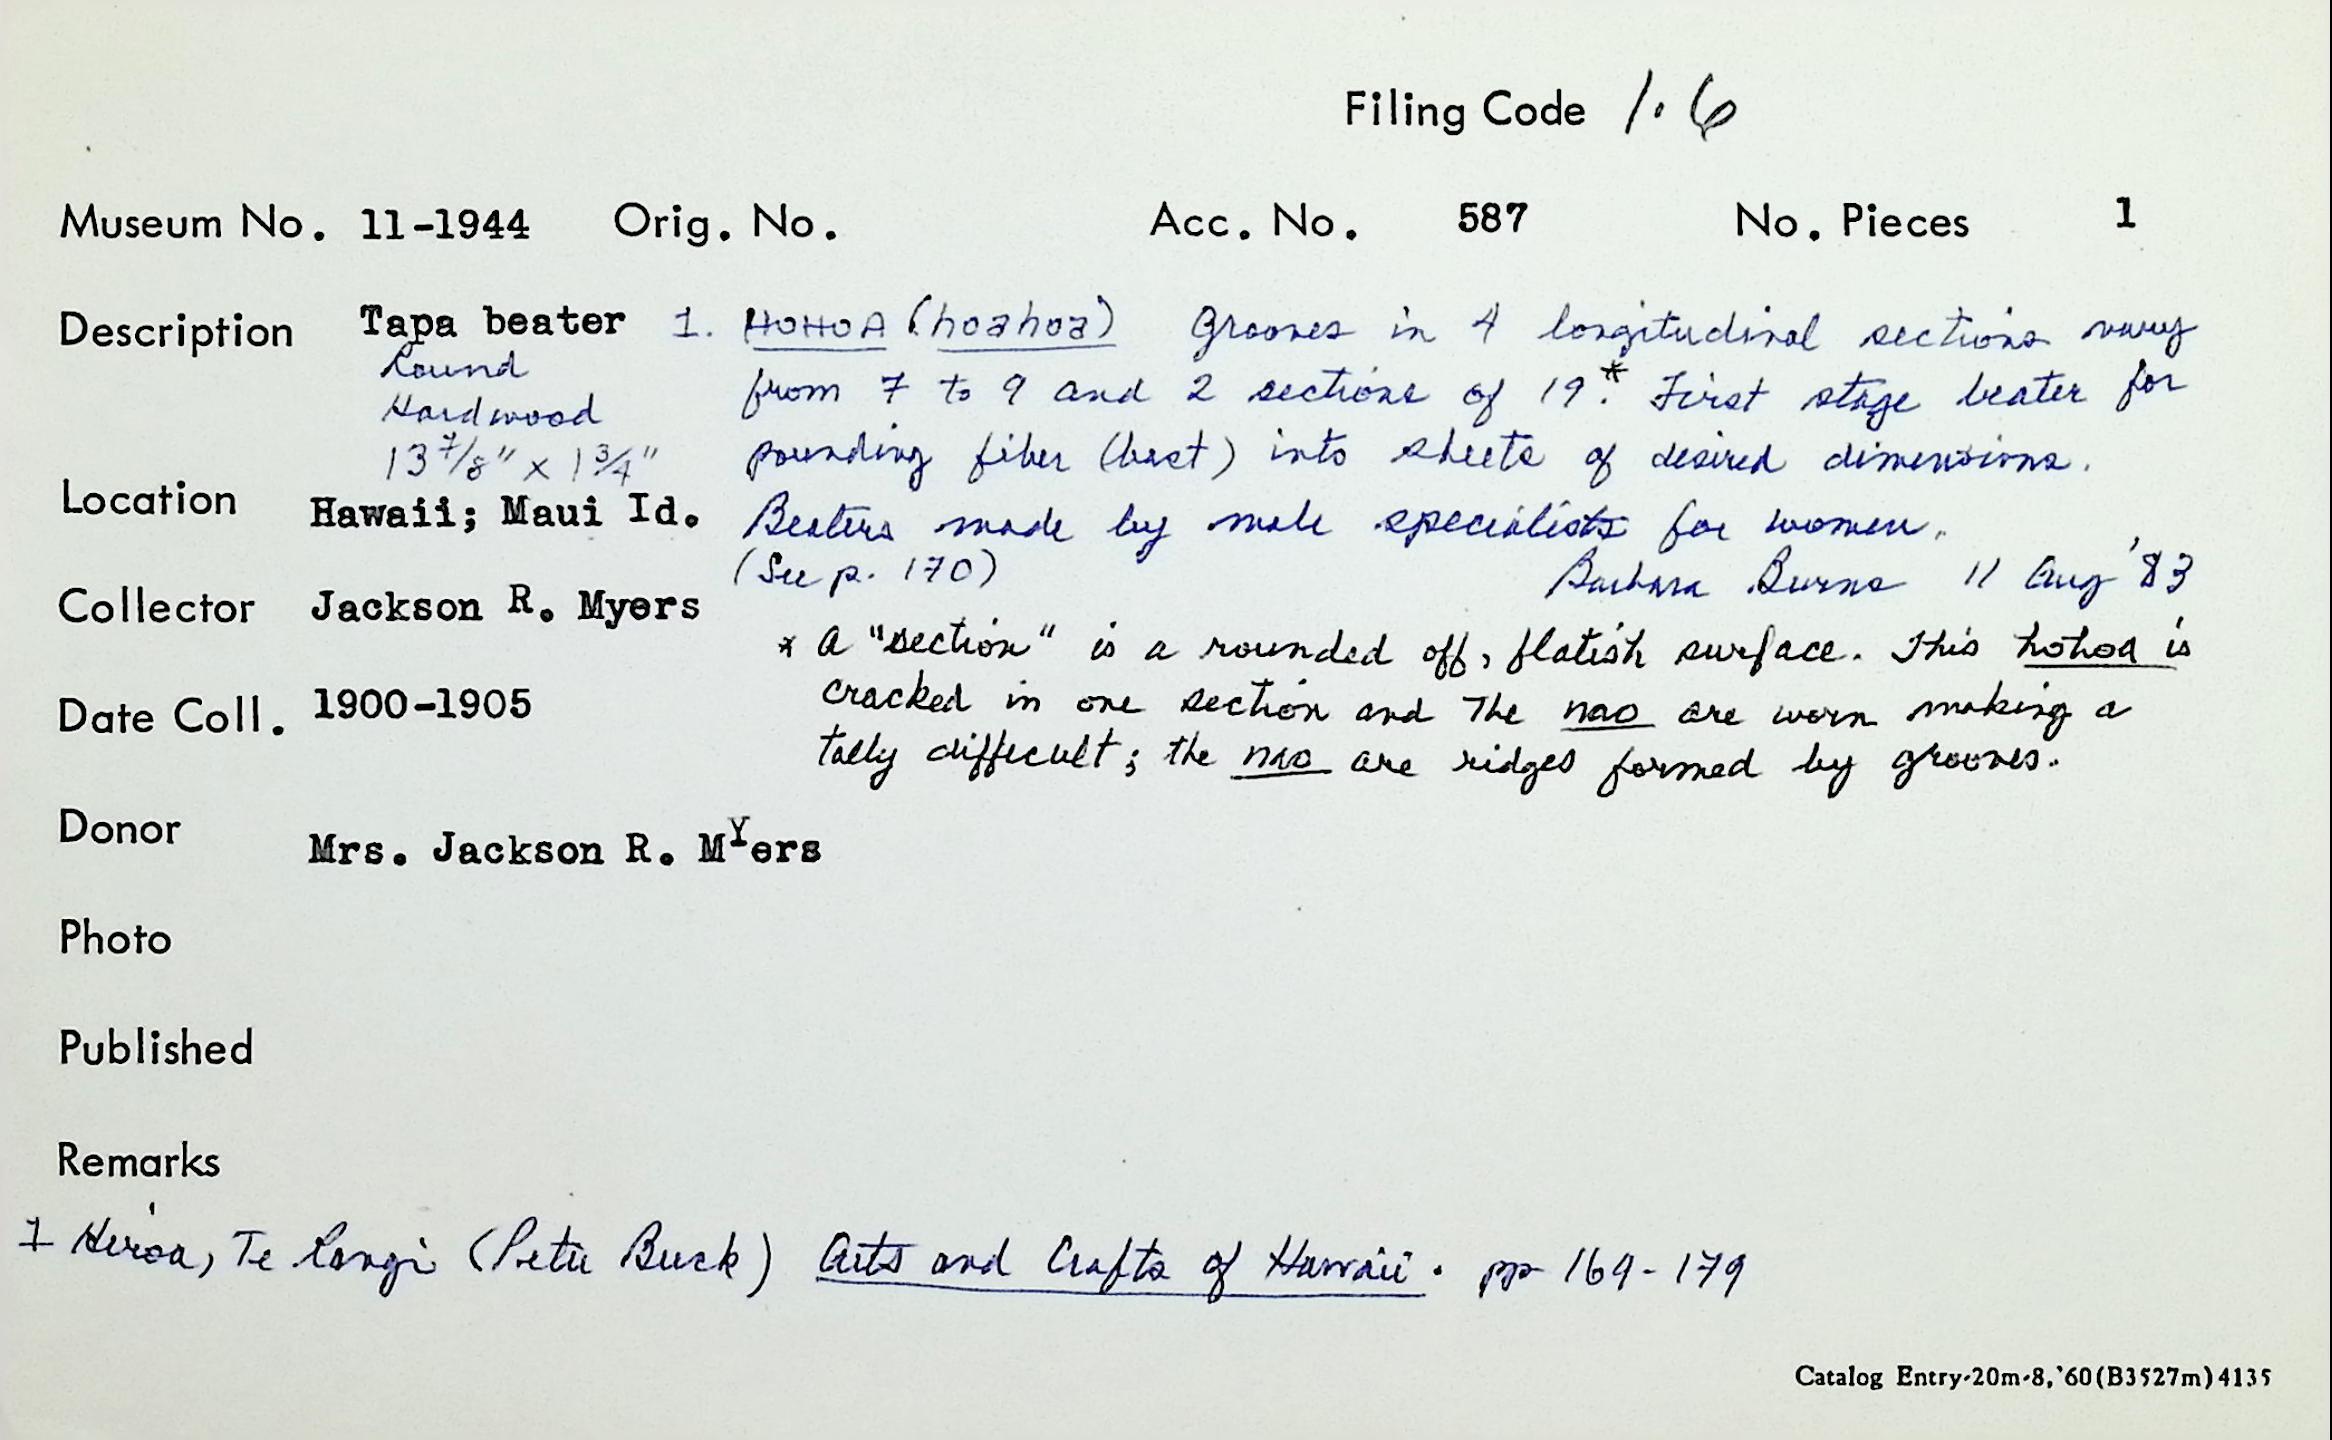 Filing Code 1.6
Museum No. 11-1944 Orig. No. Acc. No. 587 No. Pieces 1
Description Tapa beater 1. HOHOA (hoahoa) Grooves in 4 longitudinal sections vary
Round
from 7 to 9 and 2 sections of 19.* First stage beater for
Hardwood
13 7/8" x 1 3/4" pounding fiber (bast) into sheets of desired dimensions.
Location Hawaii; Maui Id. Beaters made by male specialists for women.
(See p. 170) Barbara Burns 11 Aug '83
Collector Jackson R. Myers
* A "section" is a rounded off, flatish surface. This hohoa is
cracked in one section and The nao are worn making a
Date Coll. 1900-1905
tally difficult; the nao are ridges formed by grooves.
Donor Mrs. Jackson R. Myers
Photo
Published
Remarks
1 Hiroa, Te Rangi (Peter Buck) Arts and Crafts of Hawaii. pp 169-179
Catalog Entry-20m-8,'60(B3527m)4135